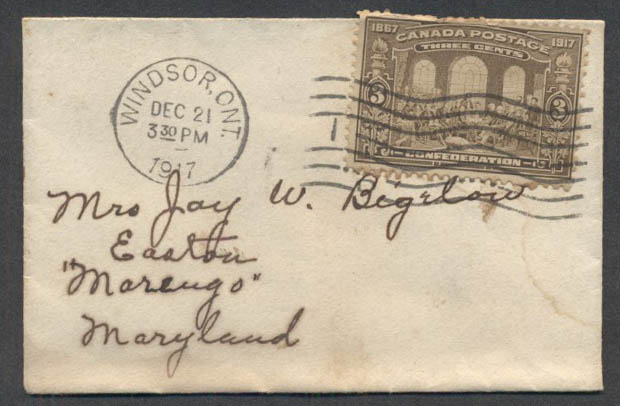 1867 CANADA POSTAGE 1917
THREE CENTS
3 3
CONFEDERATION
WINDSOR, ONT.
DEC 21
3 30 PM
1917
Mrs Jay W. Bigelow
Easton
"Marengo"
Maryland